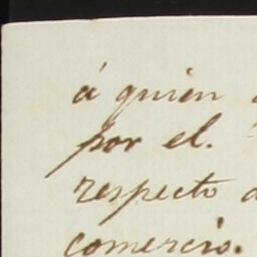 á quien
por el.
respecto
comercio.